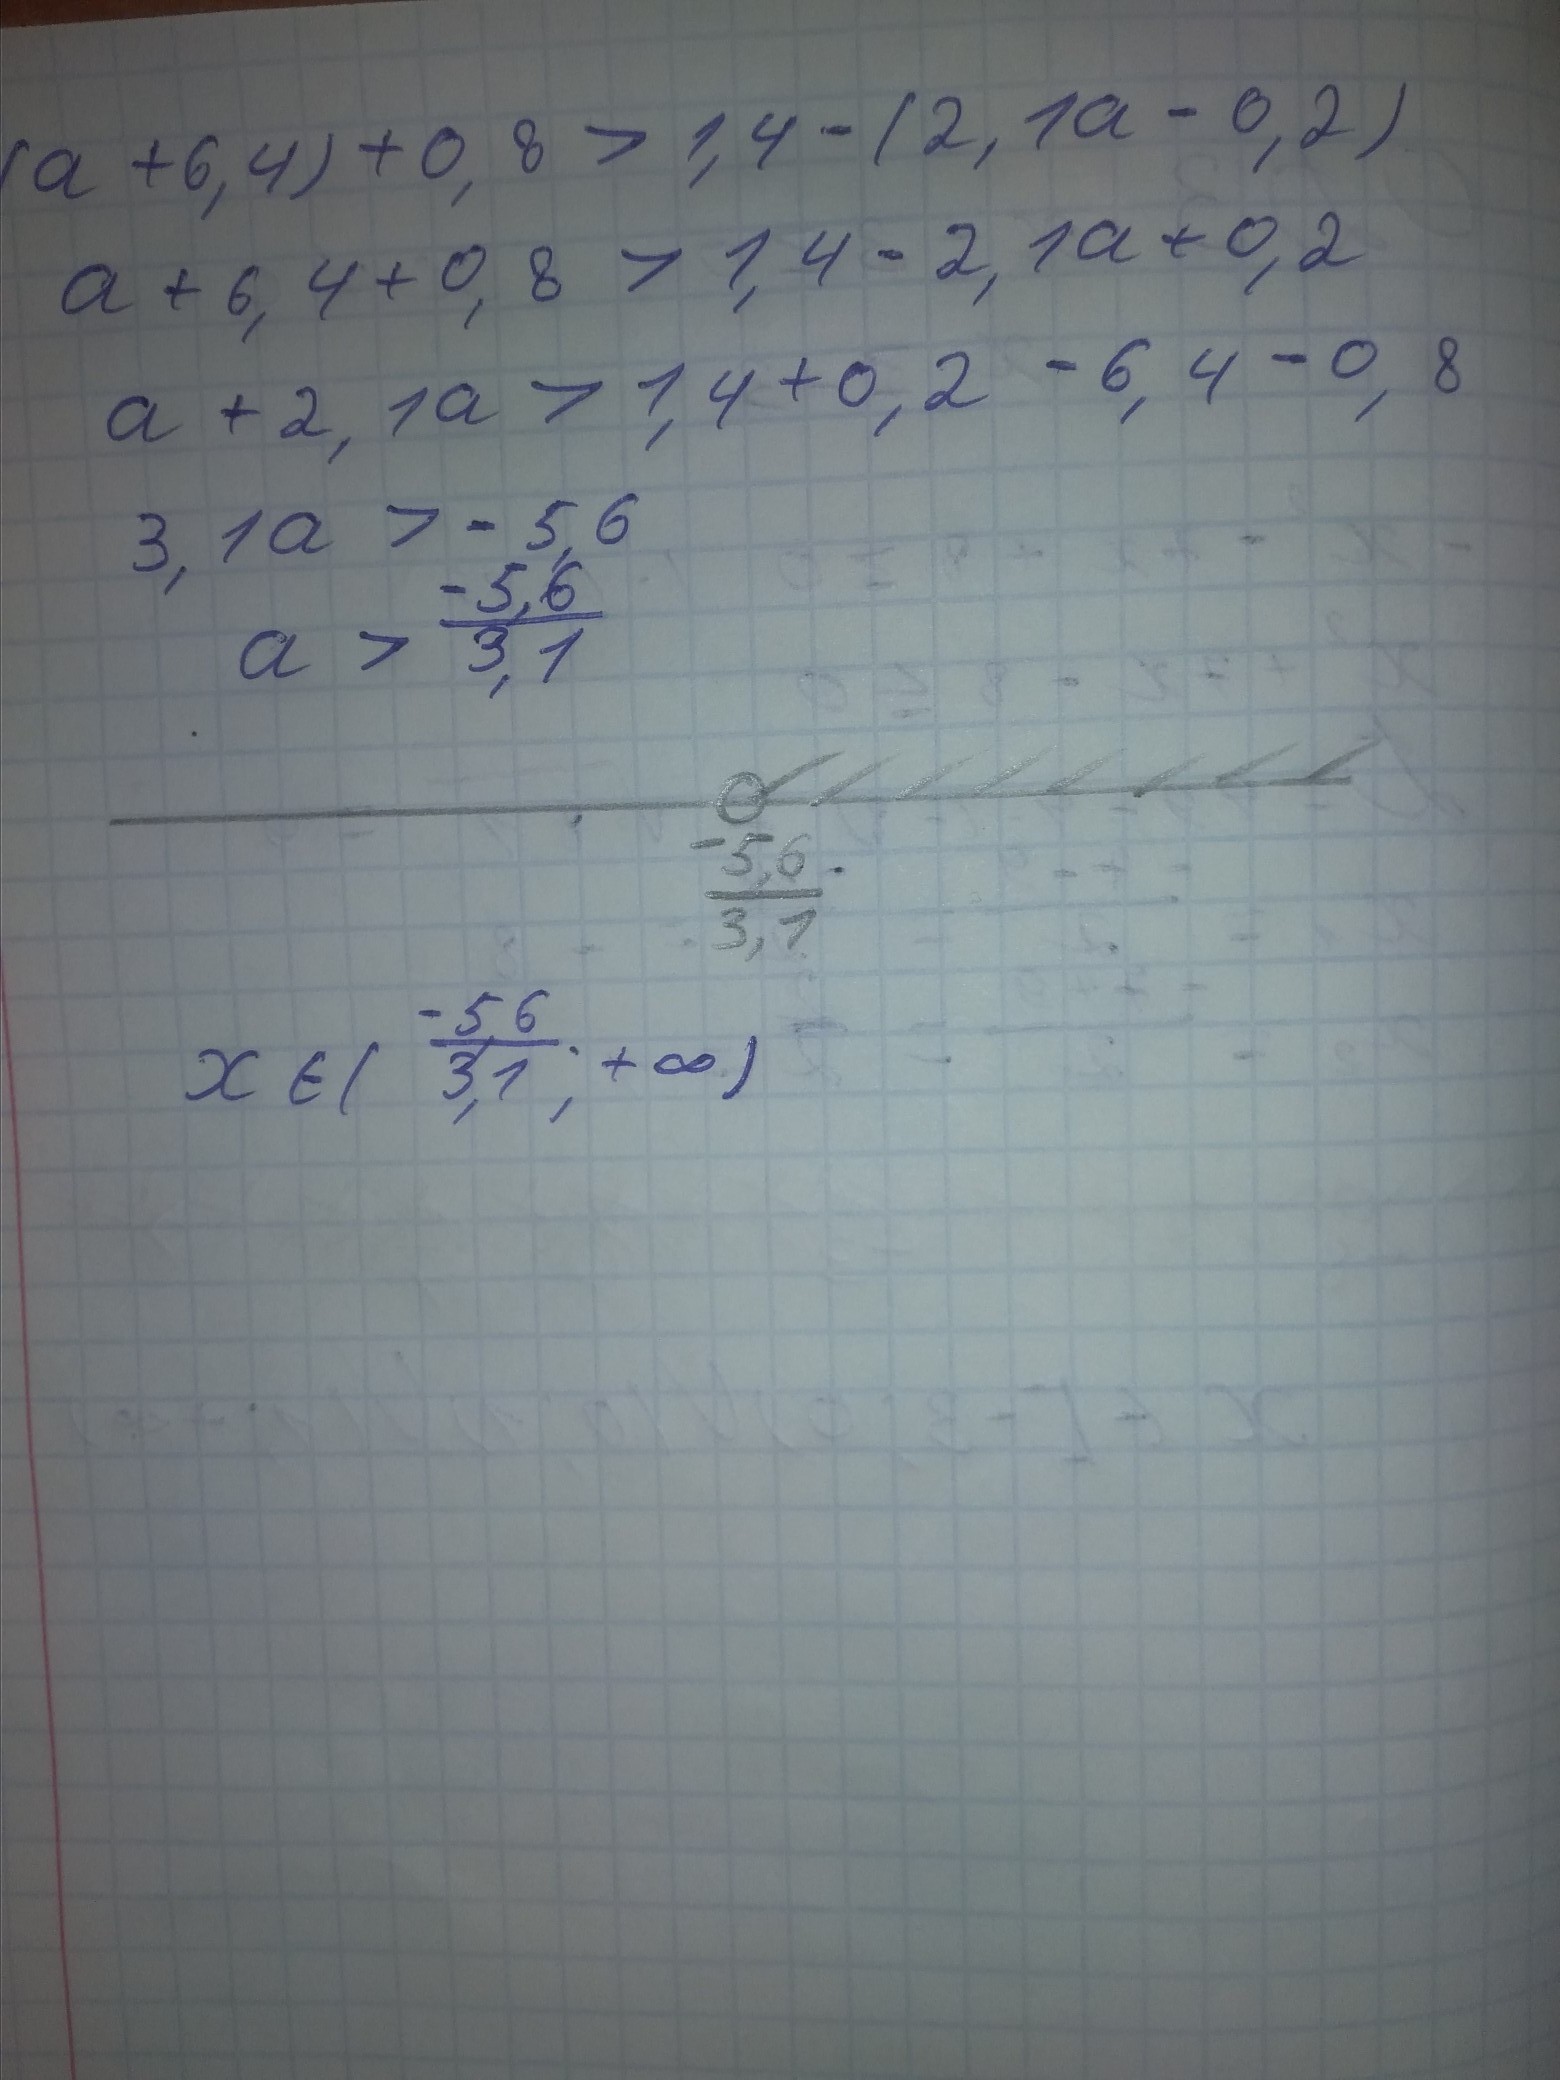 (a + 6,4) + 0,8 > 1,4 - (2,1a - 0,2)
a + 6,4 + 0,8 > 1,4 - 2,1a + 0,2
a + 2,1a > 1,4 + 0,2 - 6,4 - 0,8
3,1a > - 5,6
a > -5,6/3,1
-5,6/3,1
x ∈ ( -5,6/3,1 ; + ∞ )